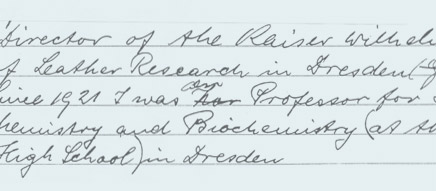 Director of the Kaiser Wilhel
of Leather Research in Dresden
Since 1921 I was Professor for
chemistry and Biochemistry (at th
High School) in Dresden